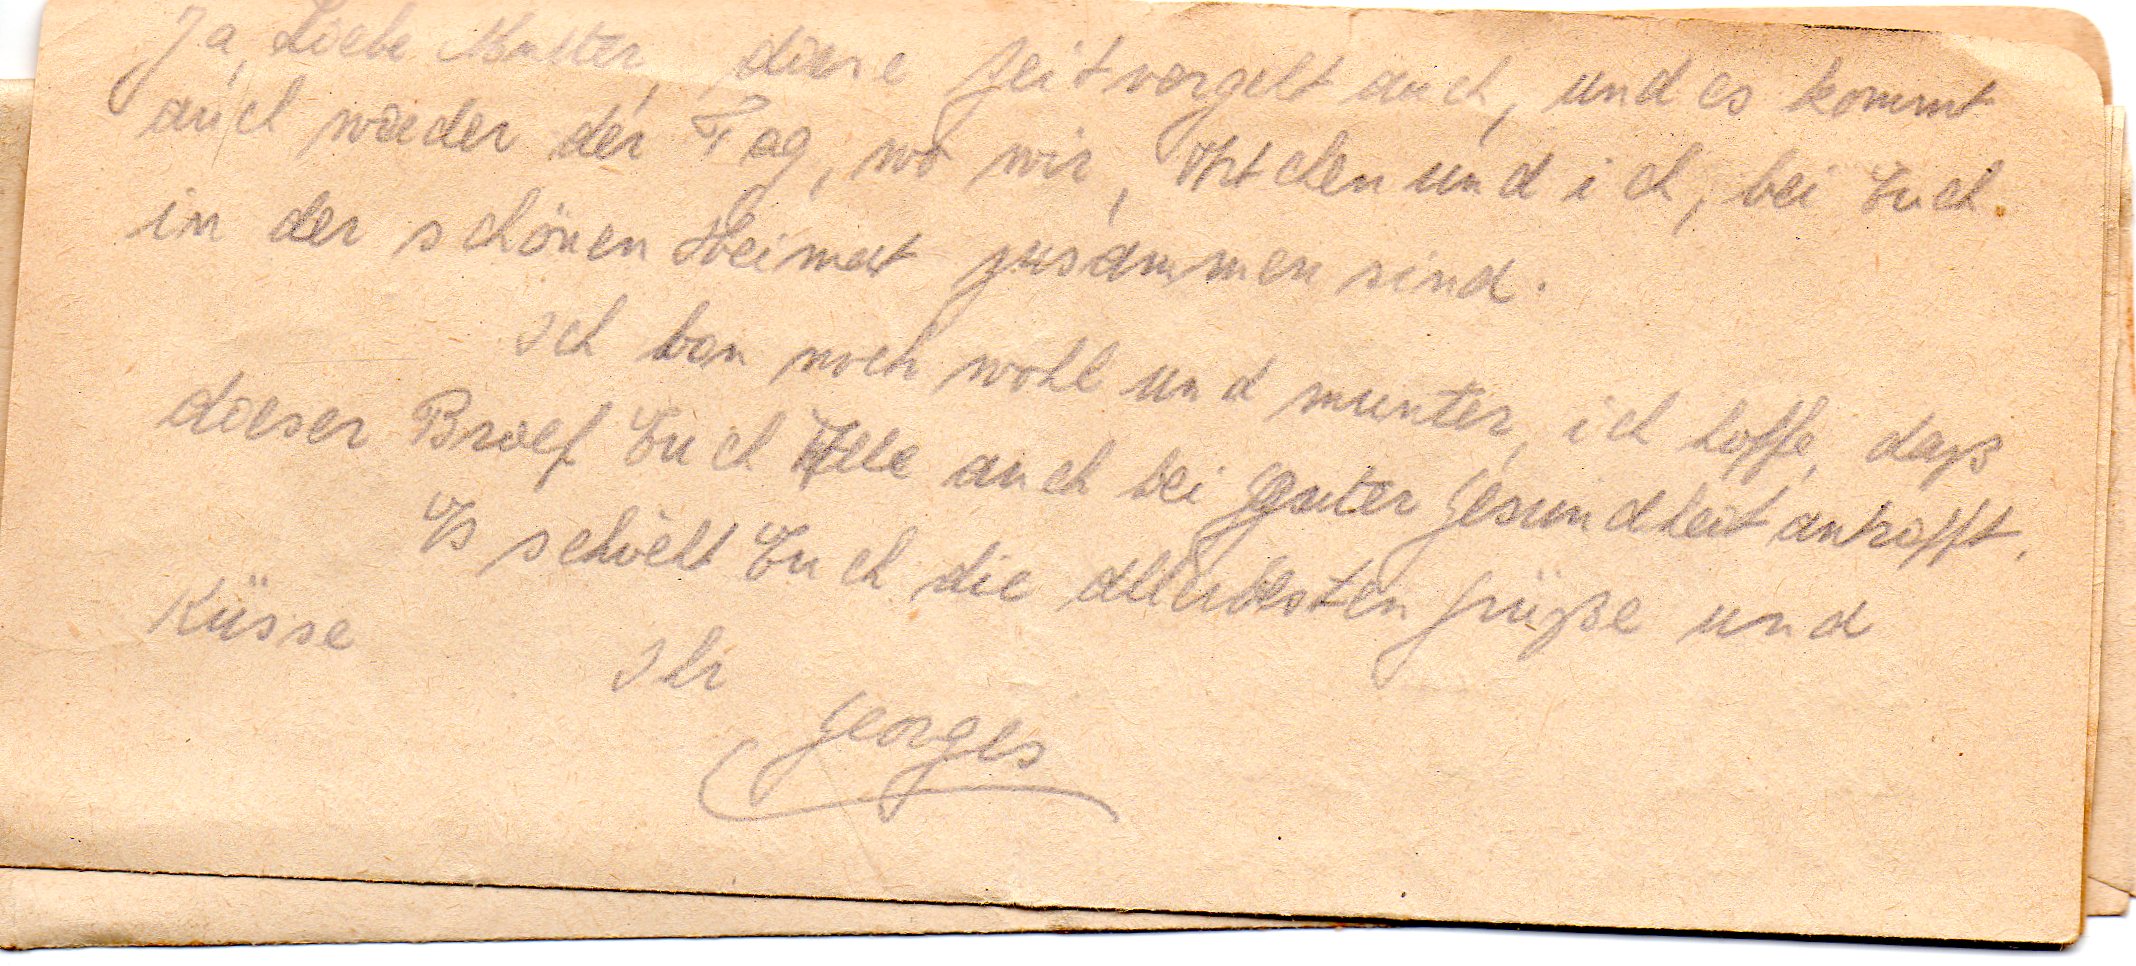 Ja, Liebe Mutter, diese Zeit vergelt auch, und es kommt
auch wieder der Tag, wo wir, und ich, bei Euch
in der schönen Heimat zusammen sind.
Ich bin noch wohl und munter, ich hoffe, daß
dieser Brief Euch Alle auch bei Guter Gesundheit antrifft.
Es schickt Euch die allerbesten Grüße und
Küsse Ihr
Georges